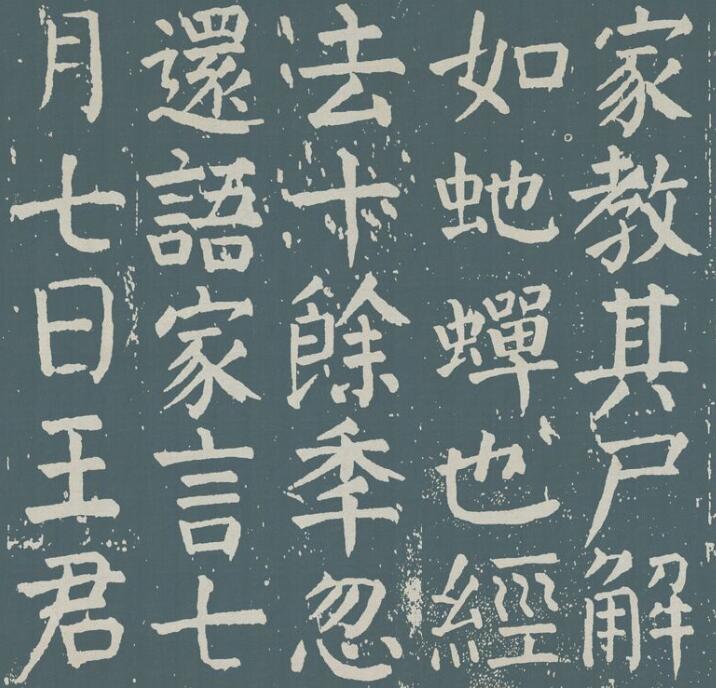 家教其尸解
如虵蟬也經
去十餘秊忽
還語家言七
月七日王君